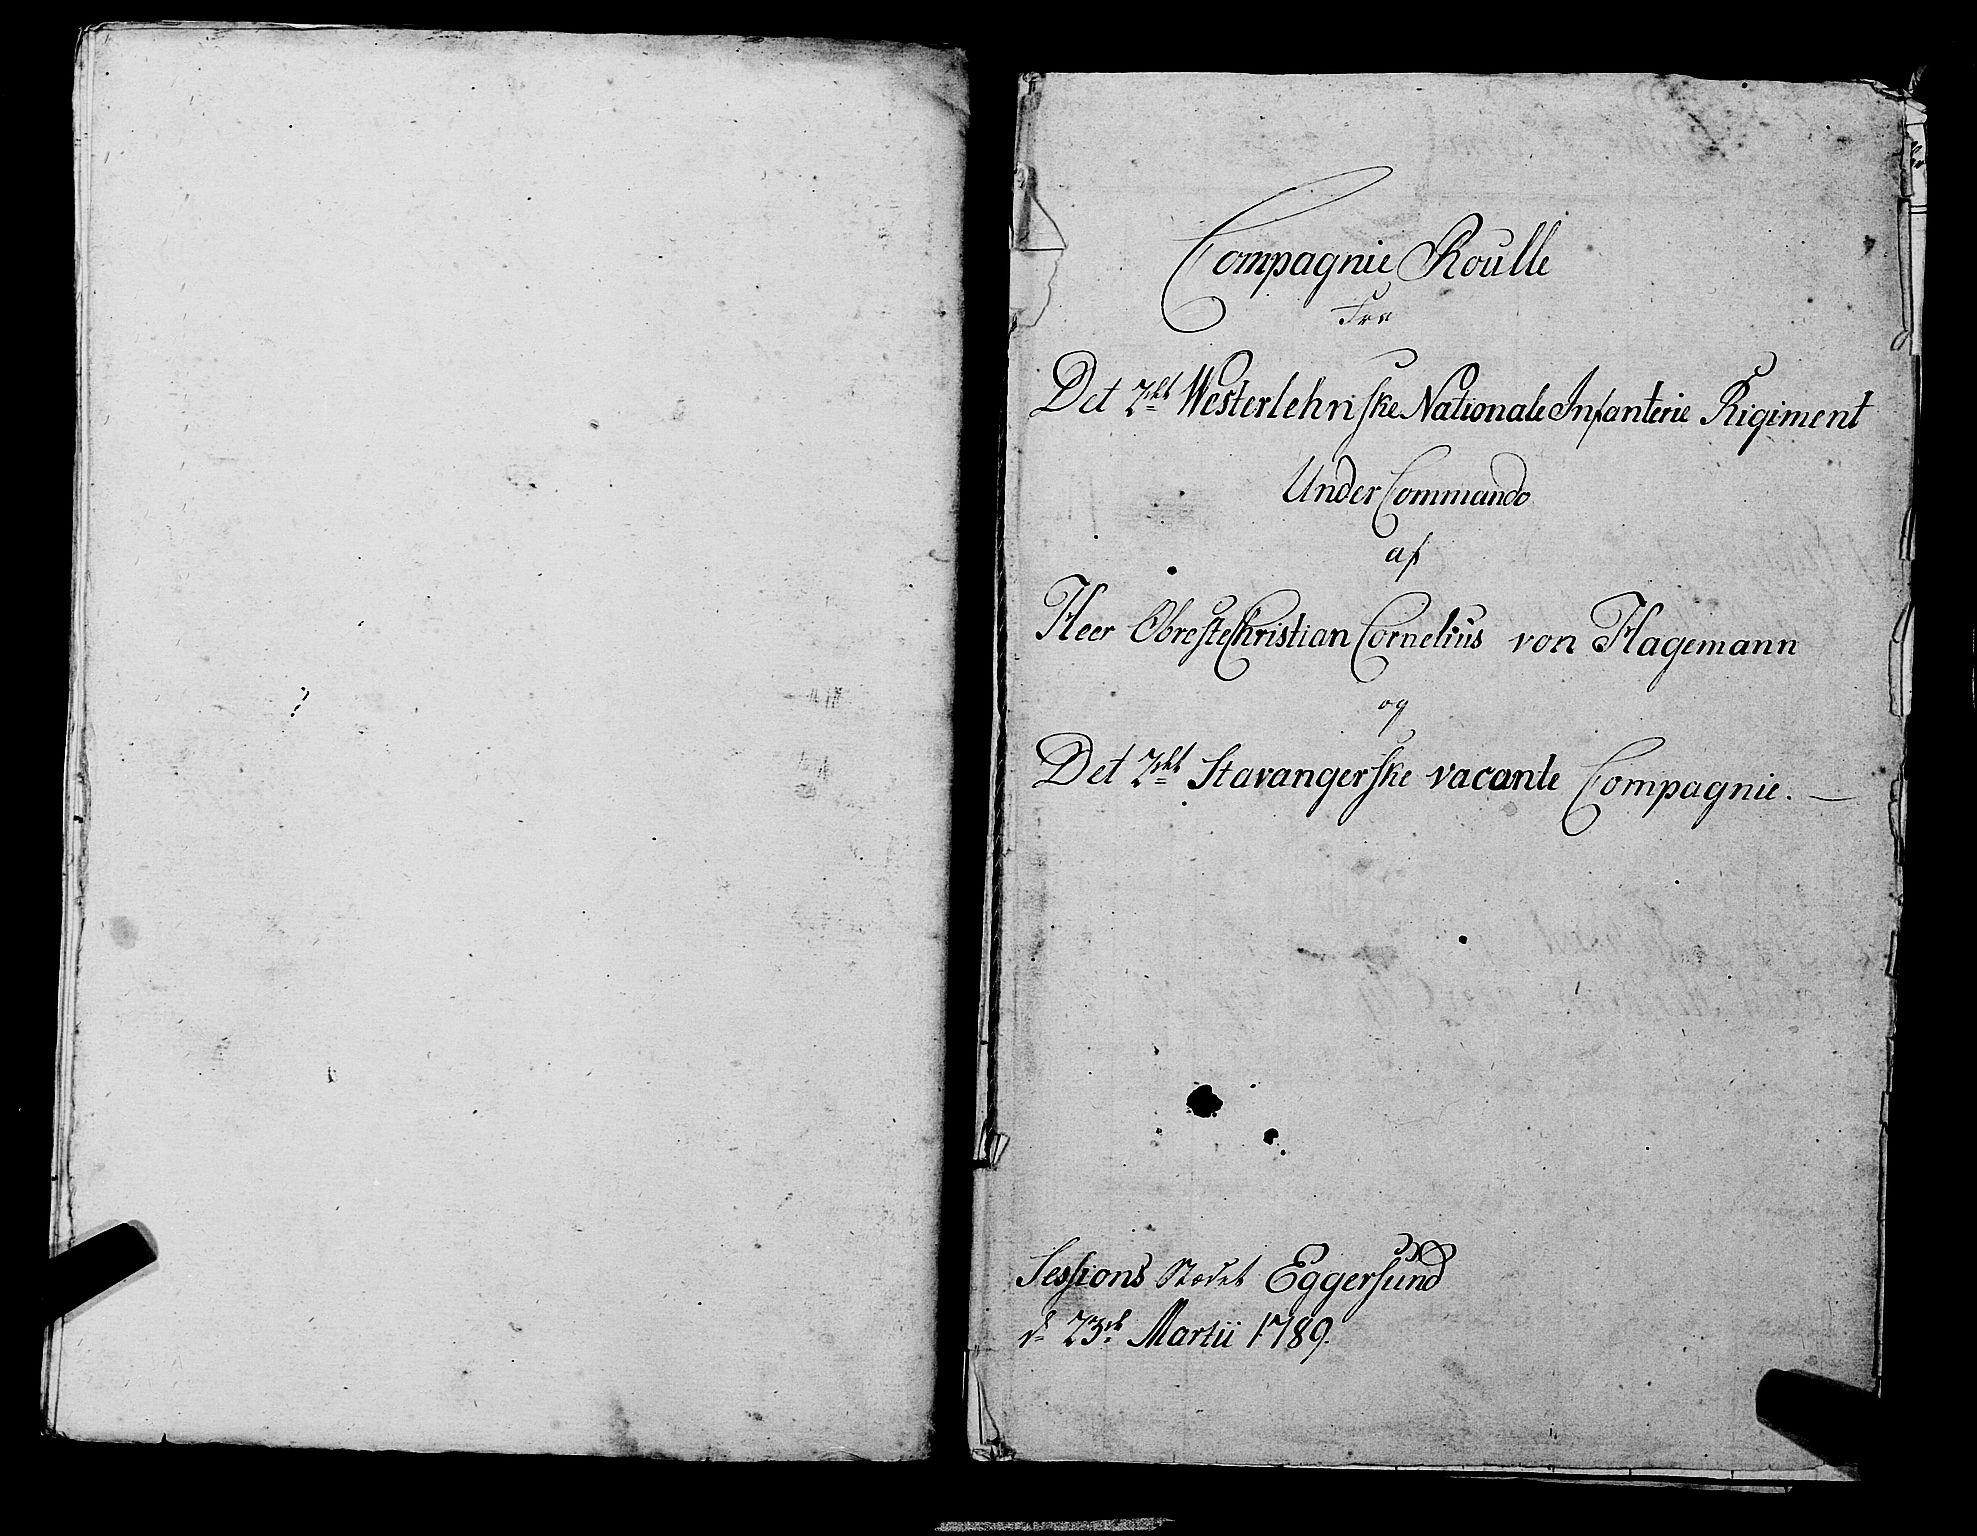 Compagnie Roulle
Fra
Det 2det Westerlehnske Nationale Infanterie Rigiment
Under Commando
af
Herr Obreste Christian Cornelius von Hagemann
og
Det 2det Stavangerske vacante Compagnie. —
Sessions Stædet Eggersund
d: 23de Martii 1789.